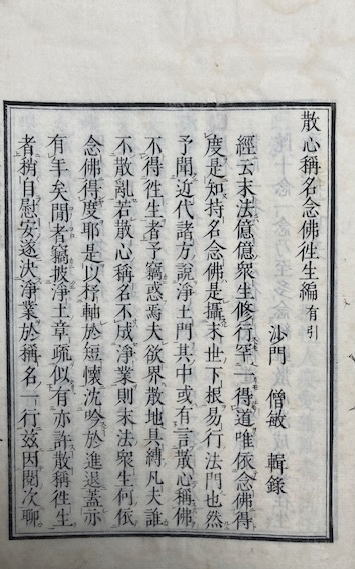 散心稱名念佛徃生編 有引
沙門 僧敏 輯錄
經云末法億億衆生修行罕一得道唯依念佛得
度是知持名念佛是攝末世下根易行法門也然
予聞近代諸方說淨土門其中或有言散心稱佛
不得徃生者予竊惑焉夫欲界散地具縛凡夫誰
不散亂若散心稱名不成淨業則末法衆生何依
念佛得度耶是以杼軸於短懷沈吟於進退蓋亦
有年矣聞者竊披淨土章疏似有亦許散稱徃生
者稍自慰安遂決淨業於稱名一行茲因閱次聊